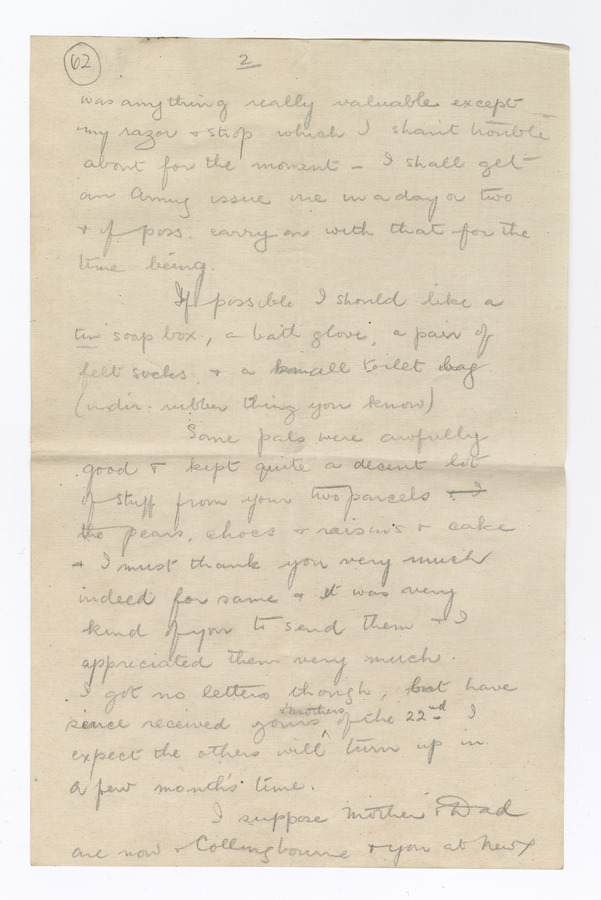 62
2
was anything really valuable except
my razor & strop which I shan't trouble
about for the moment - I shall get
an Army issue one in a day or two
& if poss. carry on with that for the
time being.
If possible I should like a
tin soap box, a bath glove, a pair of
felt socks, & a small toilet bag
(indir. rubber thing you know)
Some pals were awfully
good & kept quite a decent lot
of stuff from your two parcels
the pears, chocs & raisins & cake
& I must thank you very much
indeed for same & it was very
kind of you to send them & I
appreciated them very much.
I got no letters though, but have
since received yours & mothers of the 22nd I
expect the others will turn up in
a few month's time.
I suppose Mother & Dad
are now Collingbourne & you at